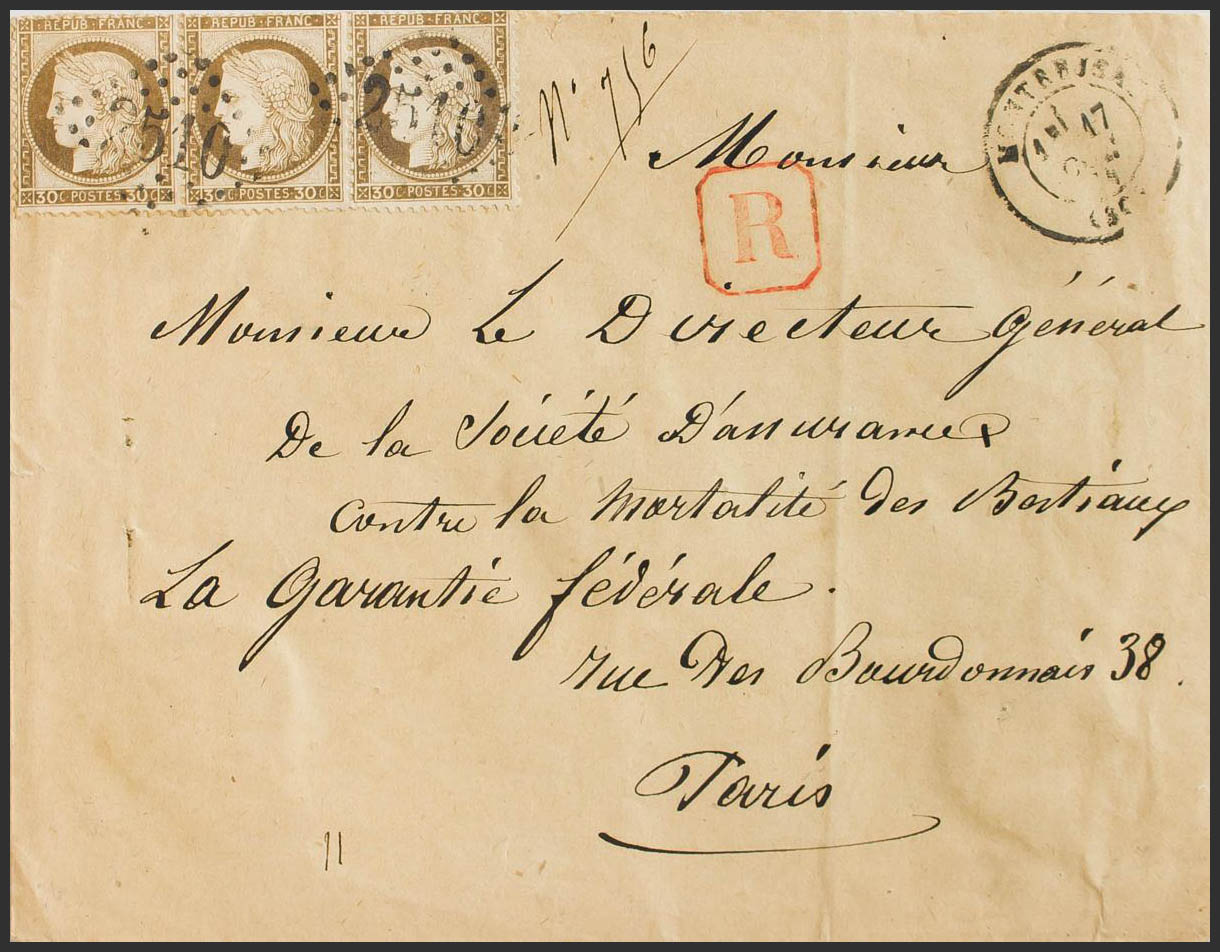 REPUB·FRANC· REPUB·FRANC· REPUB·FRANC·
30C·POSTES·30C 30C·POSTES·30C 30C·POSTES·30C
510 2518
N° 756
17
R
Monsieur
Monsieur Le Directeur Général
De la Société D'assurances
contre la Mortalité des Bestiaux
La Garantie fédérale.
rue Des Bourdonnais 38.
Paris
11